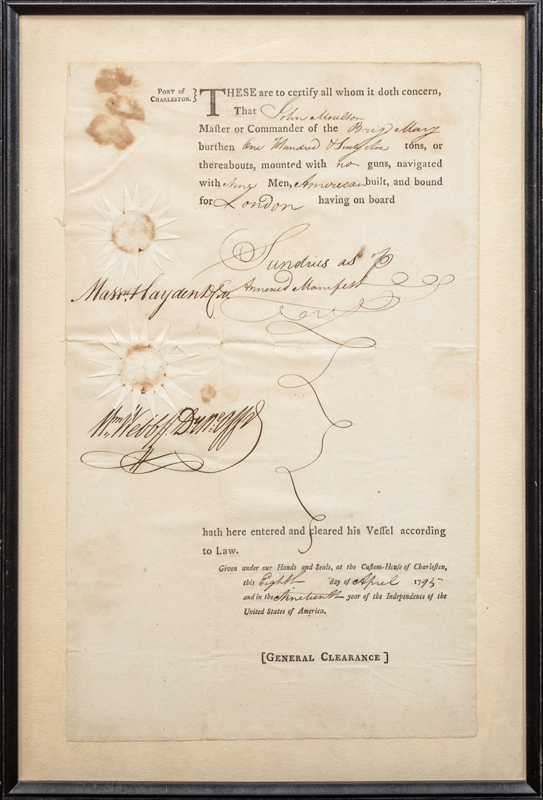 Port of
Charleston. }
THESE are to certify all whom it doth concern,
That John Moulson
Maſter or Commander of the Brig Mary
burthen One Hundred & Sixty five tons, or
thereabouts, mounted with no guns, navigated
with Nine Men, American built, and bound
for London having on board
Sundries as P
Annexed Manifest
Hayden
Wm. Webb
hath here entered and cleared his Veſſel according
to Law.
Given under our Hands and Seals, at the Cuſtom-Houſe of Charleſton,
this Eighth day of April 1795
and in the Nineteenth year of the Independence of the
United States of America.
[GENERAL CLEARANCE]